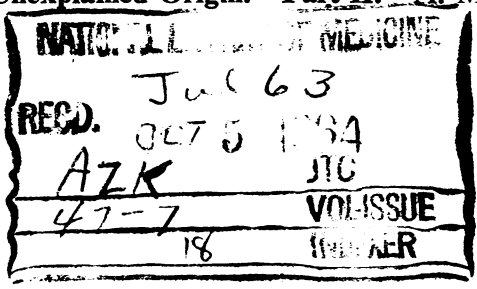 Unexplained Origin. Part II.
NATIONAL LIBRARY OF MEDICINE
Jul 63
RECD. OCT 5 1964
AZK JTC
47-7 VOL-ISSUE
18 INDEXER